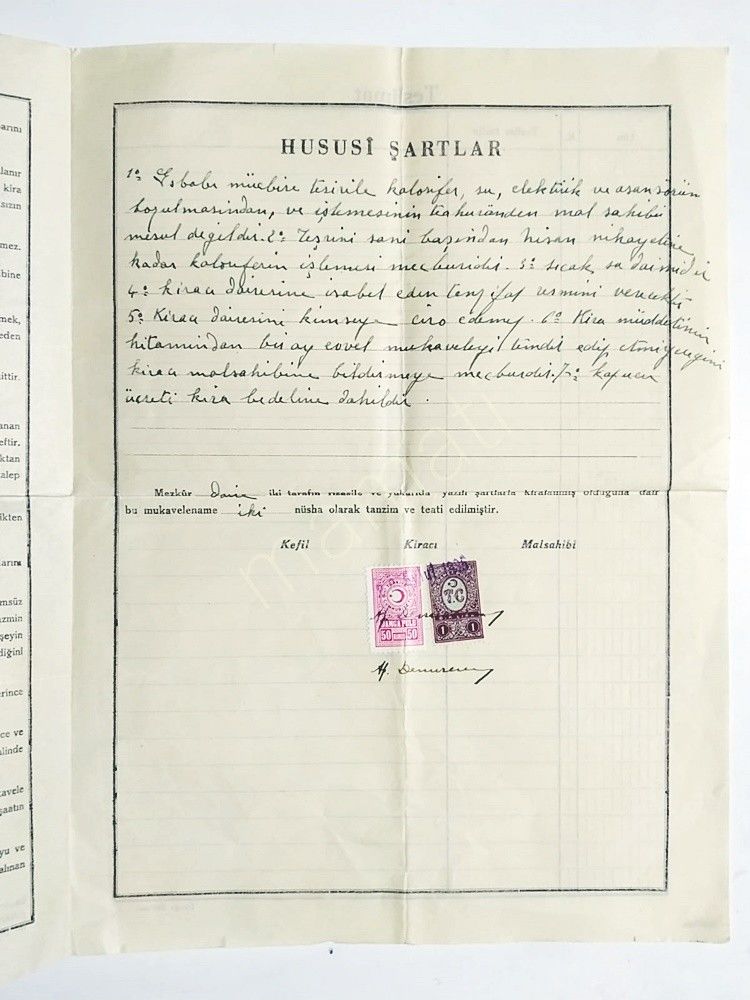 HUSUSÎ ŞARTLAR
1º Esbabı mücbire tesirile kalorifer, su, elektrik ve asansörün
bozulmasından, ve işlemesinin teahuründen mal sahibi
mesul değildir. 2º Teşrini sani başından nisan nihayetine
kadar kaloriferin işlemesi mecburidir. 3º sıcak su daimidir
4º kiracı dairesine isabet eden tenzifat resmini verecektir
5º Kiracı dairesini kimseye ciro edemez. 6º Kira müddetinin
hitamından bir ay evvel mukaveleyi temdit edip etmiyeceğini
kiracı malsahibine bildirmeye mecburdur. 7º kapıcı
ücreti kira bedeline dahildir.
Mezkûr daire iki tarafın rızasile ve yukarıda yazılı şartlarla kiralanmış olduğuna dair
bu mukavelename iki nüsha olarak tanzim ve teati edilmiştir.
Kefil Kiracı Malsahibi
T.C
DAMGA PULU
50 50
1 1
arını
lanır
kira
sızın
mez.
bine
mek,
eden
ittir.
anan
eftir.
ktan
alep
ikten
arını
msüz
zmin
şeyin
diğini
erince
ce ve
alinde
avele
şaatın
yu ve
alınan